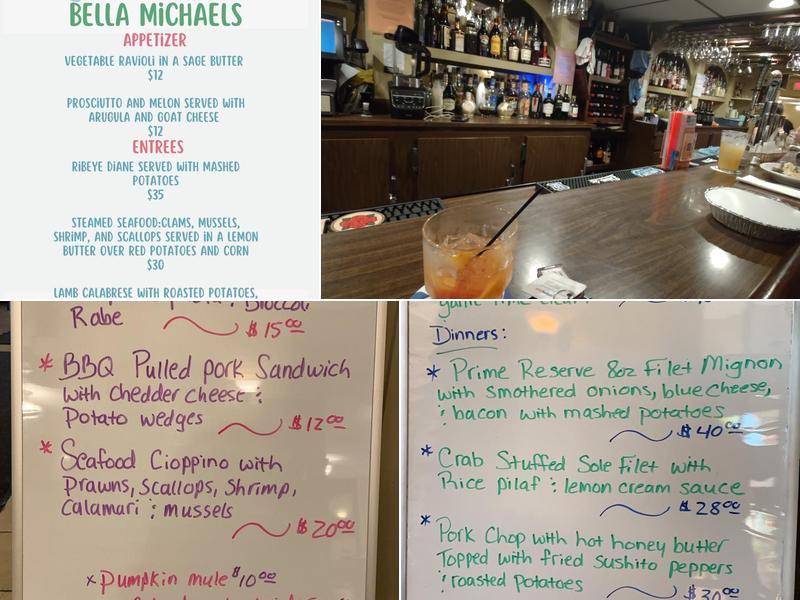 BELLA MiCHAELS
APPETiZER
VEGETABLE RAVIOLI IN A SAGE BUTTER
$12
PROSCIUTTO AND MELON SERVED WITH
ARUGULA AND GOAT CHEESE
$12
ENTREES
RIBEYE DIANE SERVED WITH MASHED
POTATOES
$35
STEAMED SEAFOOD:CLAMS, MUSSELS,
SHRIMP, AND SCALLOPS SERVED IN A LEMON
BUTTER OVER RED POTATOES AND CORN
$30
LAMB CALABRESE WITH ROASTED POTATOES,
Broccoli
Rabe $15.00
* BBQ Pulled pork Sandwich
with chedder cheese :
Potato wedges $12.00
* Seafood Cioppino with
Prawns, Scallops, Shrimp,
Calamari : mussels
$20.00
x Pumpkin mule $10.00
Dinners:
* Prime Reserve 8oz Filet Mignon
with smothered onions, blue cheese,
: bacon with mashed potatoes
$40.00
* Crab Stuffed Sole Filet with
Rice pilaf : lemon cream sauce
$28.00
* Pork Chop with hot honey butter
Topped with fried Sushito peppers
: roasted potatoes $30.00